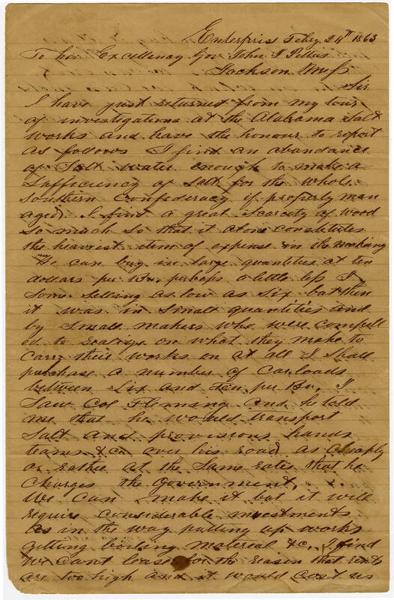 Enterprise Feby 24th 1863
To his Excellency Gov John J Pettus
Jackson Miss
Sir
I have just returned from my tour
of investigations at the Alabama Salt
Works and have the honour to report
as follows I find an abundance
of Salt water enough to make a
Sufficiency of Salt for the whole
Southern Confederacy if properly man
aged. I find a great Scarcity of wood
So much So that it alone constitutes
the heaviest item of expense in the making
We can buy in large quantities at ten
dollars per Bu, perhaps a little less I
Some selling as low as Six but then
it was in Small quantities and
by Small makers who were compell
ed to on what they make to
carry their works on at all I Shall
purchase a number of Carloads
between Six and Ten per Bu, I
Saw Col Fleming and he told
me that he would transport
Salt and provisions hands
teams &c over his road as cheaply
or rather at the Same rates that he
Charges the Government,
We can make it but it will
require considerable investments
as in the way putting up works
getting boiling material &c, I find
We Cant lease for the reason that rents
are too high and it would Cost us